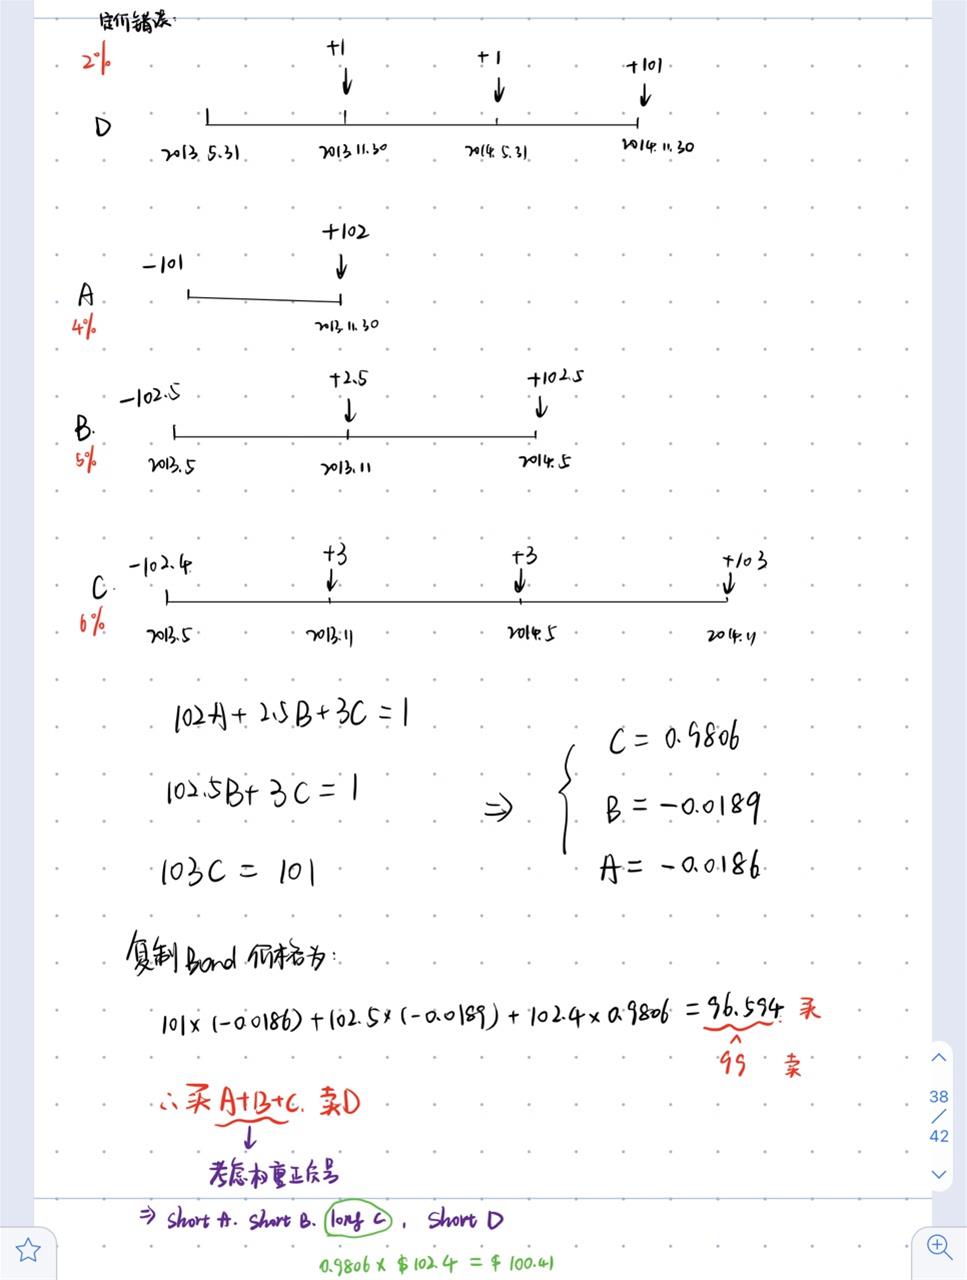 定价错误:
2%
+1
+1
+101
D
2013.5.31
2013.11.30
2014.5.31
2014.11.30
+102
-101
A
4%
2013.11.30
-102.5
+2.5
+102.5
B.
5%
2013.5
2013.11
2014.5
-102.4
+3
+3
+103
C.
6%
2013.5
2013.11
2014.5
2014.11
102A + 2.5B + 3C = 1
102.5B + 3C = 1
103C = 101
⇒
C = 0.9806
B = -0.0189
A = -0.0186
复制Bond价格为:
101×(-0.0186)+102.5×(-0.0189)+102.4×0.9806 = 96.594 买
^
99 卖
∴买A+B+C. 卖D
↓
考虑权重正负号
⇒ short A. short B. long C, short D
0.9806 × $102.4 = $100.41
38
/
42